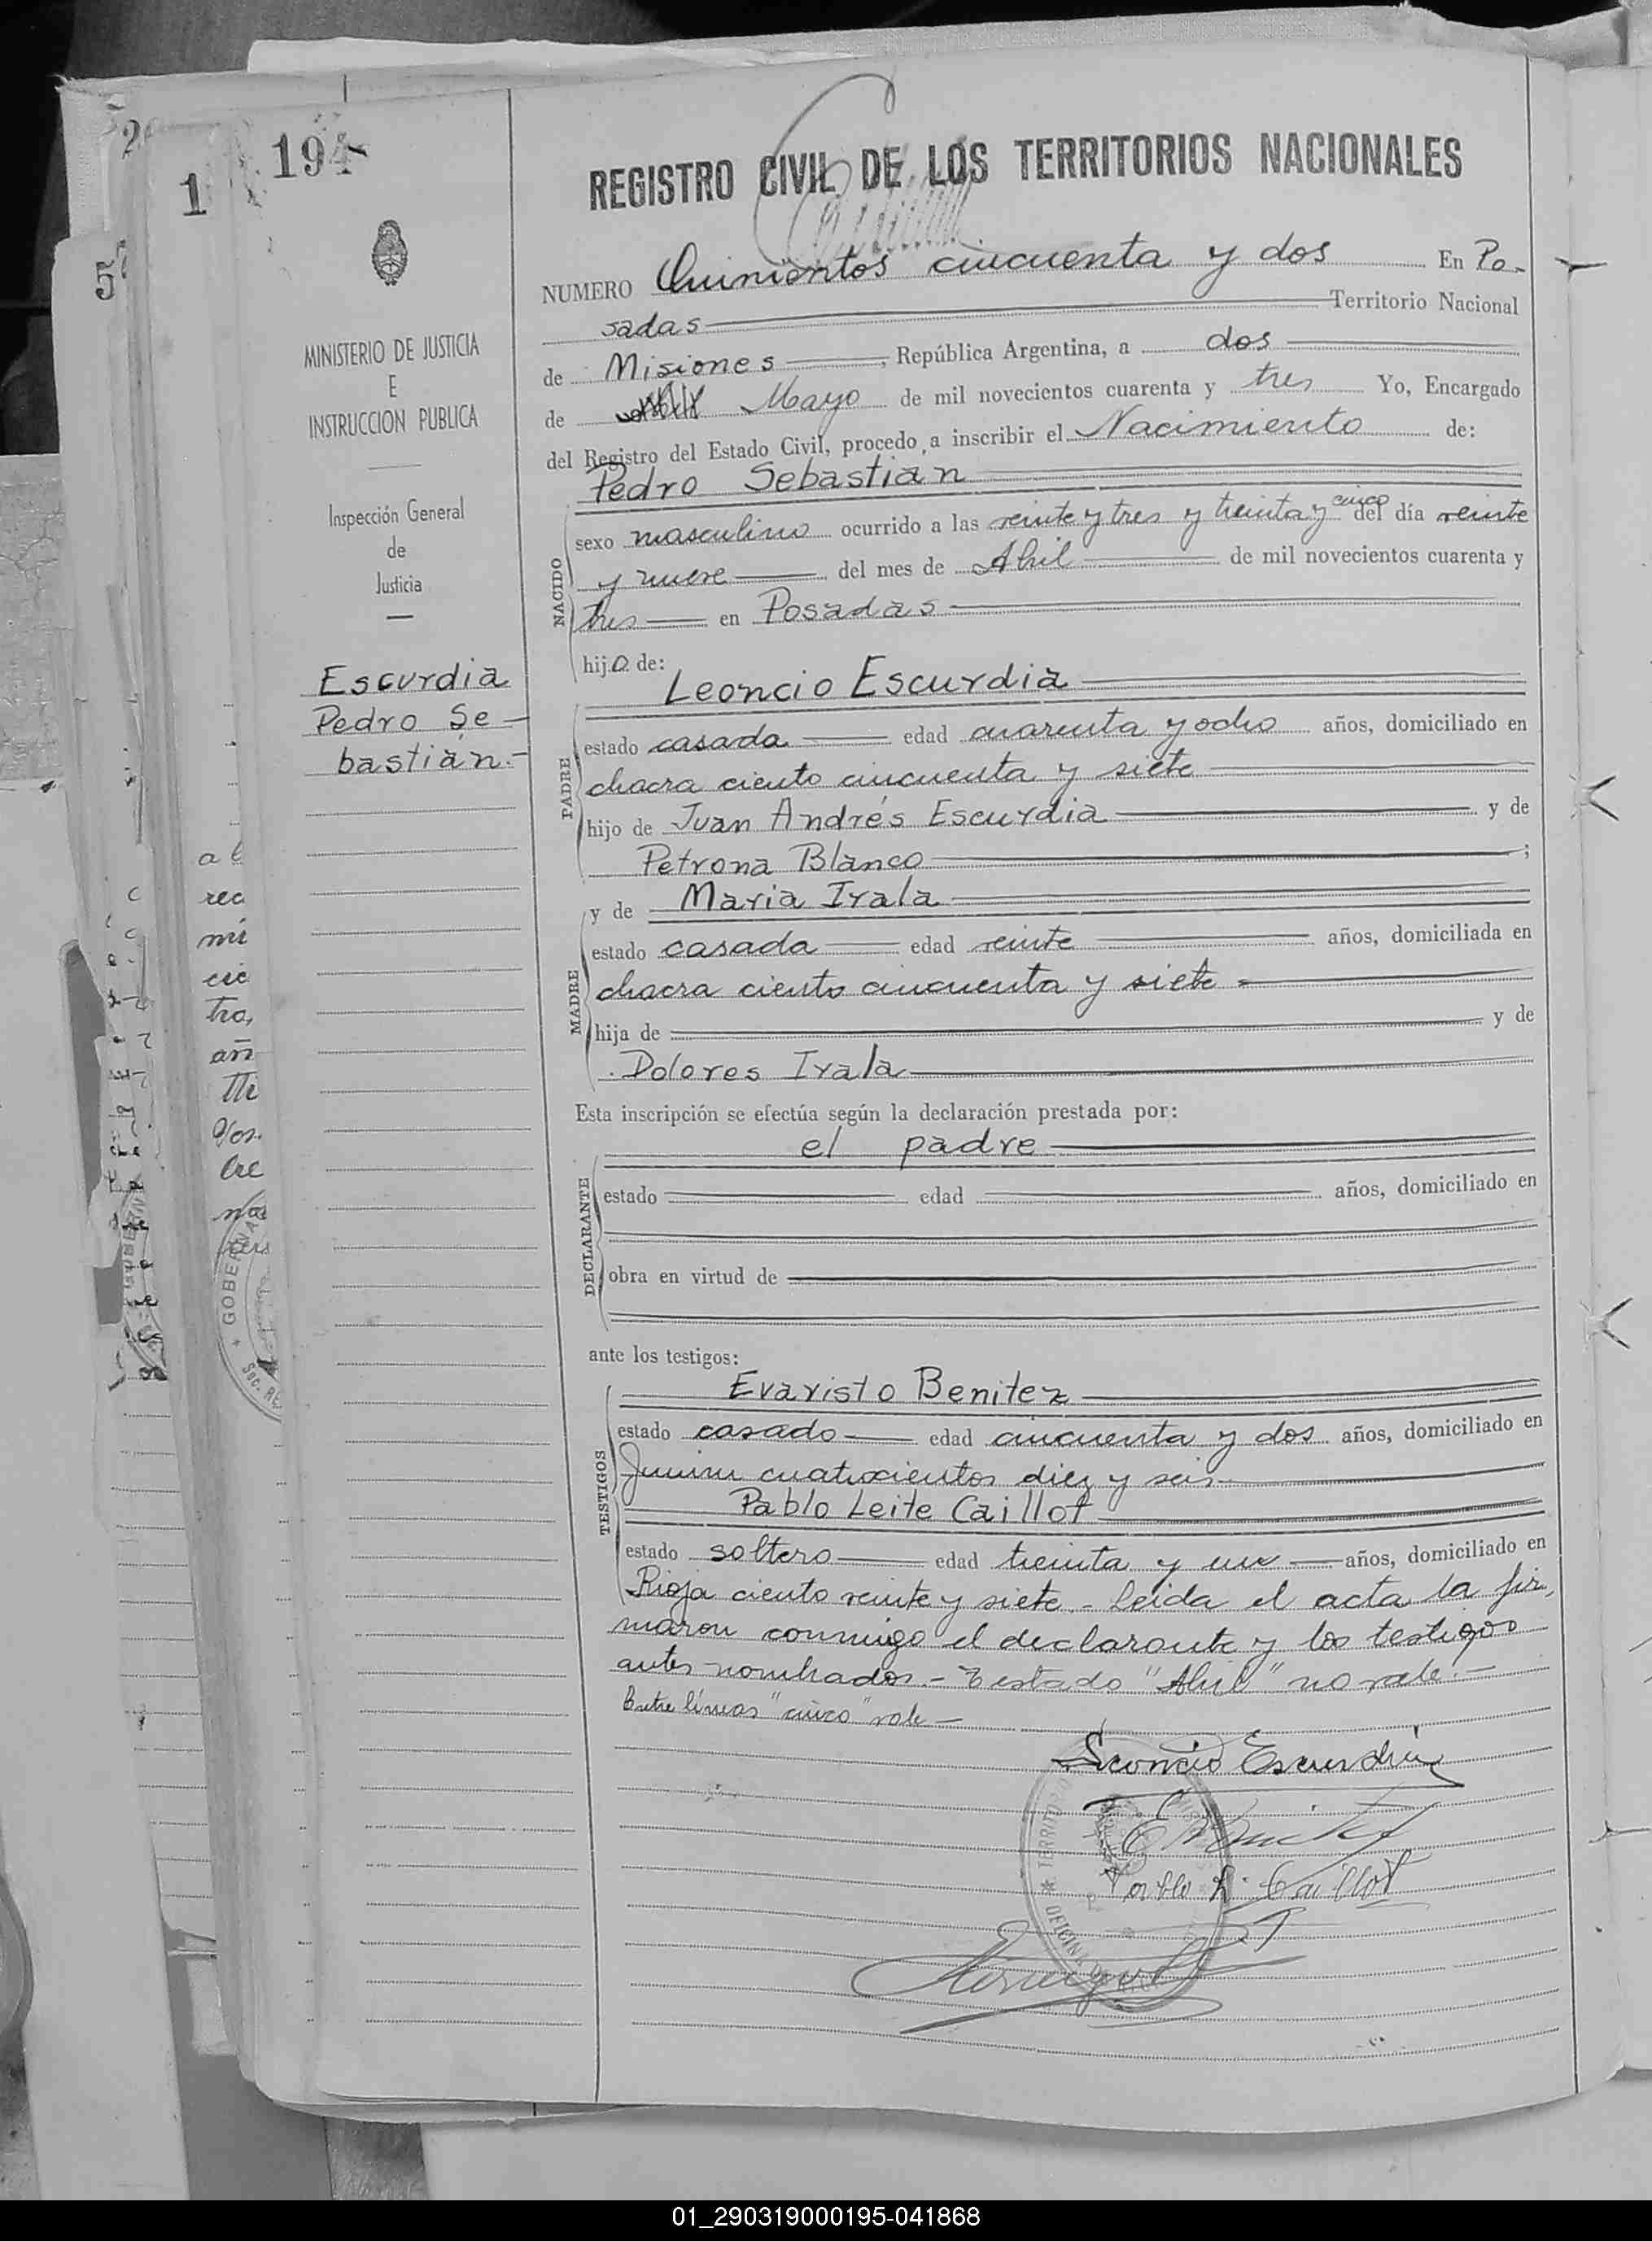 194
1
5
REGISTRO CIVIL DE LOS TERRITORIOS NACIONALES
MINISTERIO DE JUSTICIA
E
INSTRUCCION PUBLICA
Inspección General
de
Justicia
Escurdia
Pedro Se
bastián.-
NUMERO Quinientos cincuenta y dos En Po-
sadas Territorio Nacional
de Misiones, República Argentina, a dos
de Abril Mayo de mil novecientos cuarenta y tres Yo, Encargado
del Registro del Estado Civil, procedo a inscribir el Nacimiento de:
Pedro Sebastian
NACIDO
sexo masculino ocurrido a las veinte y tres y treinta y cinco del día veinte
y nueve del mes de Abril de mil novecientos cuarenta y
tres en Posadas
hijo de:
Leoncio Escurdia
PADRE
estado casada edad cuarenta y ocho años, domiciliado en
chacra ciento cincuenta y siete
hijo de Juan Andrés Escurdia y de
Petrona Blanco ;
y de Maria Irala
MADRE
estado casada edad veinte años, domiciliada en
chacra ciento cincuenta y siete
hija de y de
Dolores Irala
Esta inscripción se efectúa según la declaración prestada por:
el padre
DECLARANTE
estado edad años, domiciliado en
obra en virtud de
ante los testigos:
Evaristo Benitez
TESTIGOS
estado casado edad cincuenta y dos años, domiciliado en
Junin cuatrocientos diez y seis
Pablo Leite Caillot
estado soltero edad treinta y un años, domiciliado en
Rioja ciento veinte y siete.- Leida el acta la fir,
maron conmigo el declarante y los testigos
antes nombrados.- Testado "Abril" no vale.-
Entre líneas "cinco" vale-
Leoncio Escurdia
Pablo L. Caillot
01_290319000195-041868